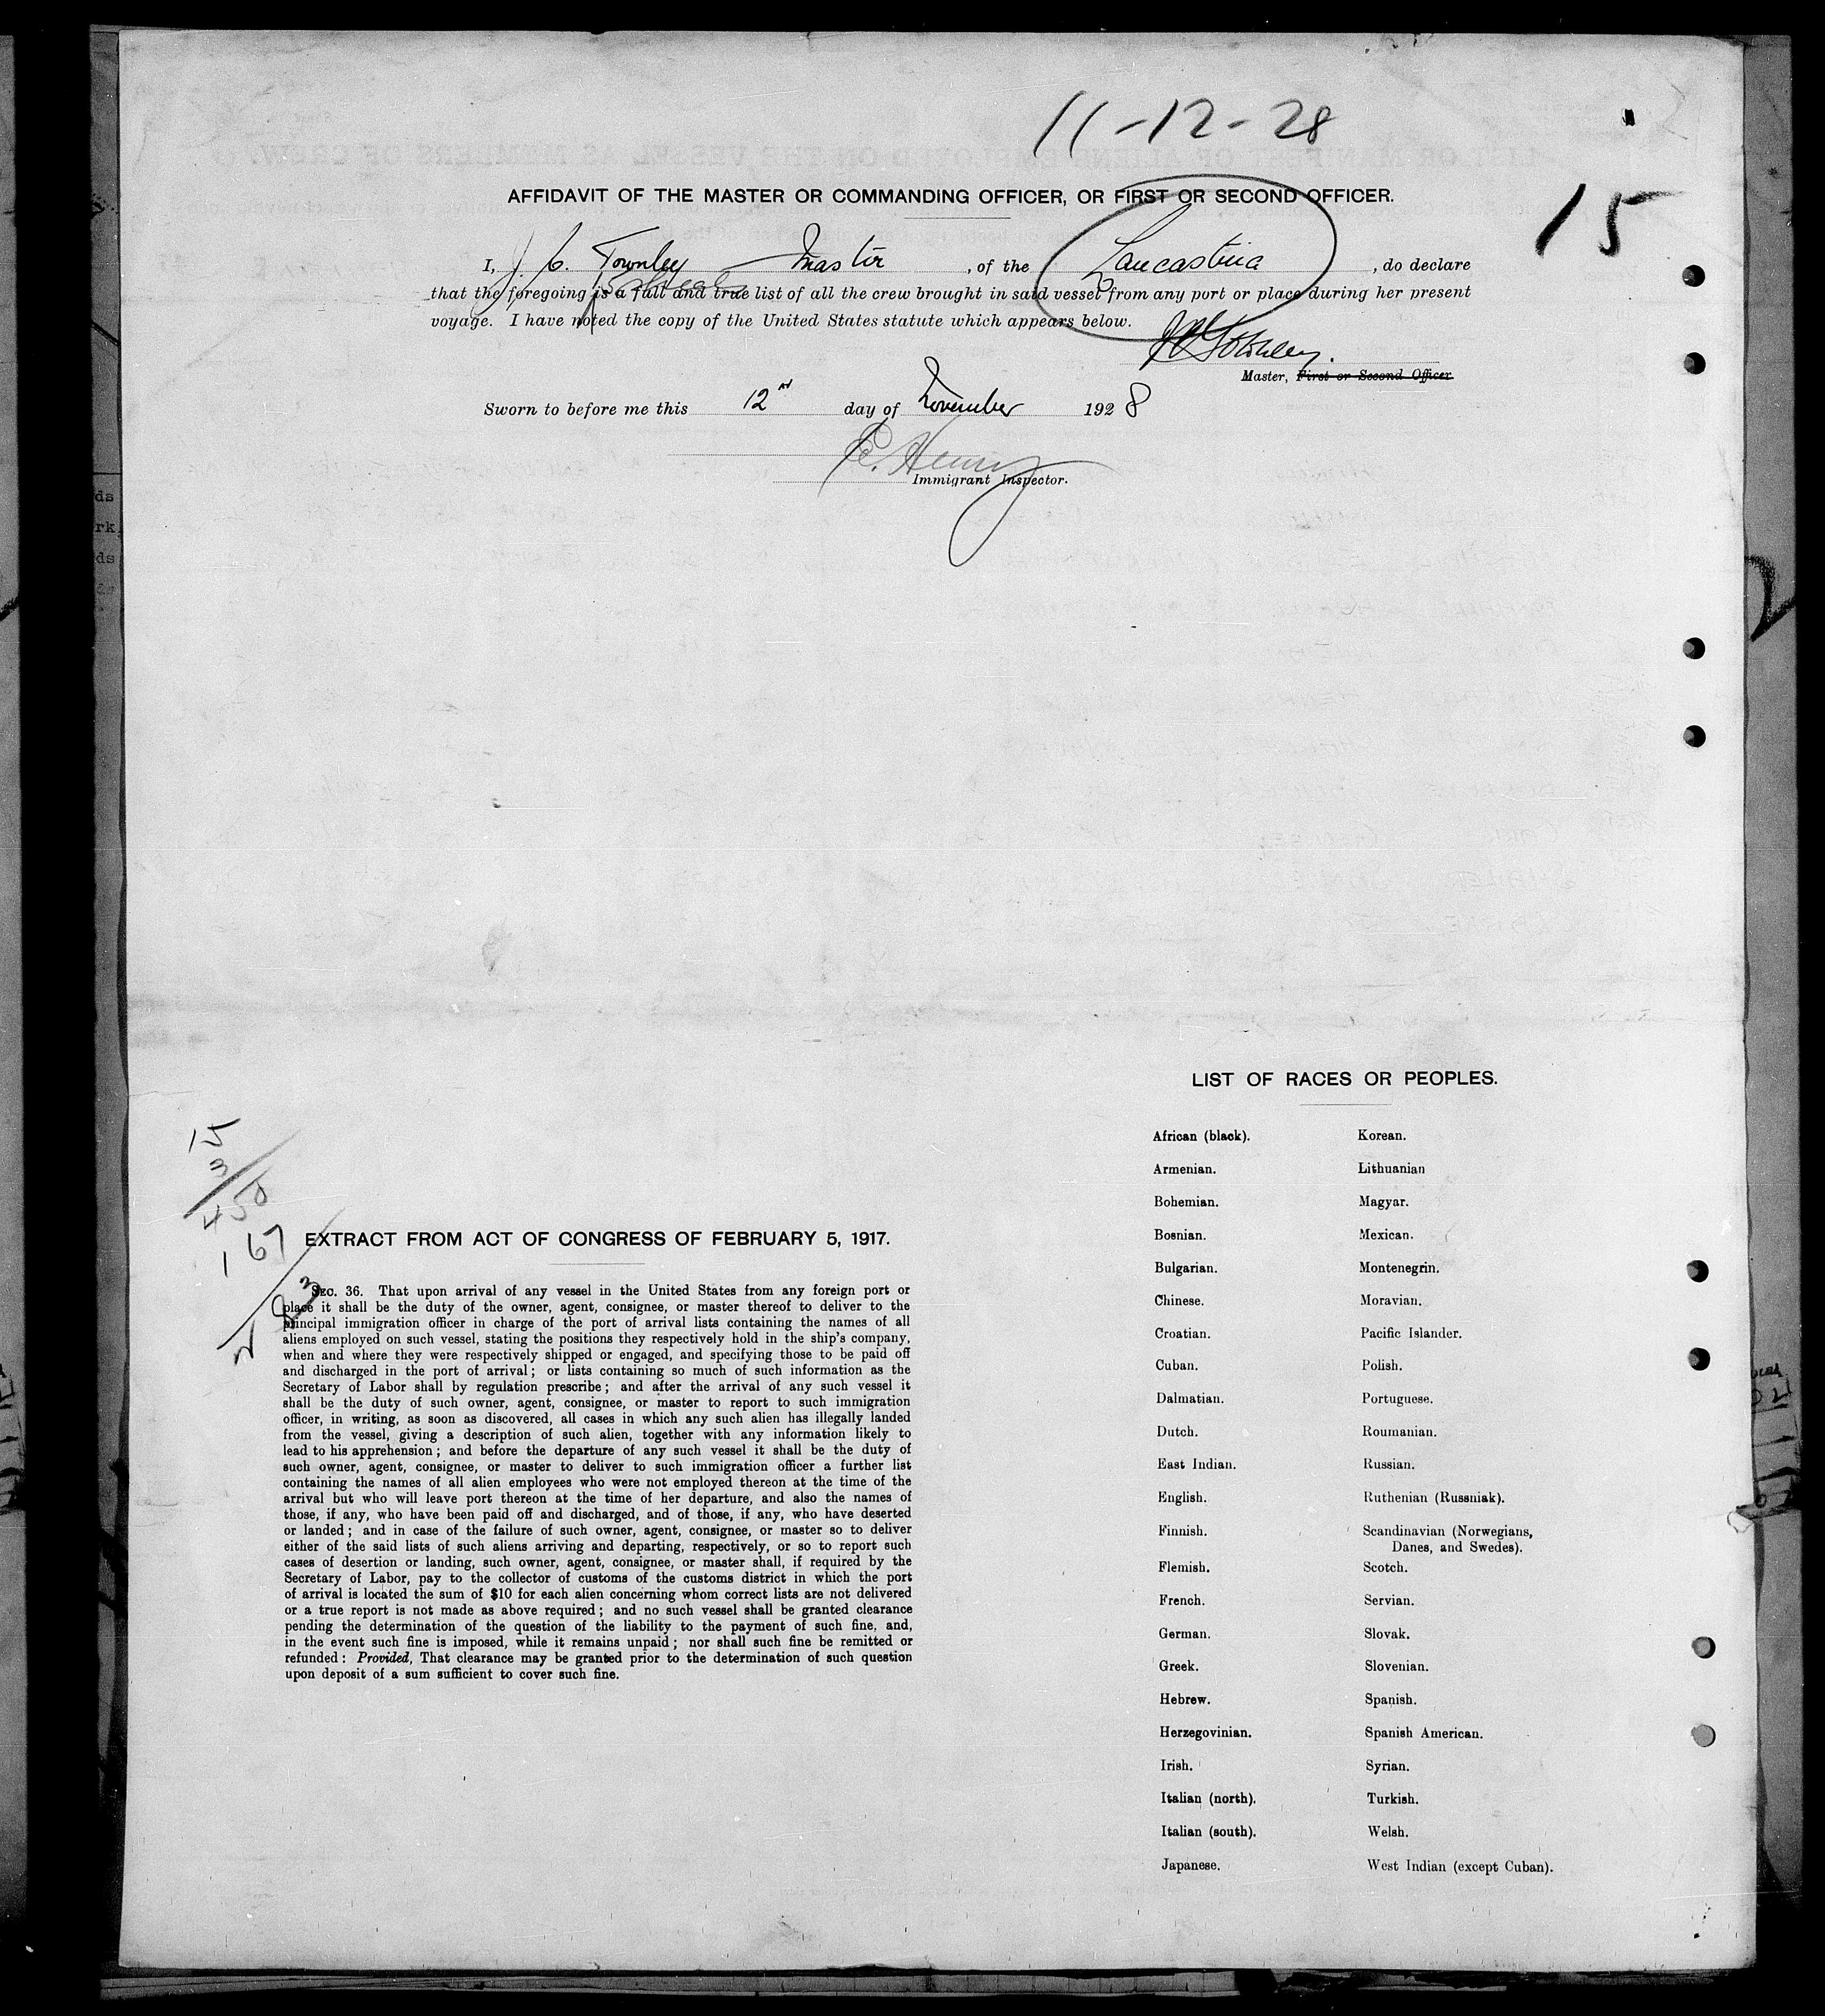 11-12-28
15
AFFIDAVIT OF THE MASTER OR COMMANDING OFFICER, OR FIRST OR SECOND OFFICER.
I, J. C. Townley Master, of the Lancastria, do declare
that the foregoing is a full and true list of all the crew brought in said vessel from any port or place during her present
voyage. I have noted the copy of the United States statute which appears below.
Townley.
Master, First or Second Officer
Sworn to before me this 12 day of November 1928
E. Henry
Immigrant Inspector.
LIST OF RACES OR PEOPLES.
African (black). Korean.
Armenian. Lithuanian
Bohemian. Magyar.
Bosnian. Mexican.
Bulgarian. Montenegrin.
Chinese. Moravian.
Croatian. Pacific Islander.
Cuban. Polish.
Dalmatian. Portuguese.
Dutch. Roumanian.
East Indian. Russian.
English. Ruthenian (Russniak).
Finnish. Scandinavian (Norwegians,
Danes, and Swedes).
Flemish. Scotch.
French. Servian.
German. Slovak.
Greek. Slovenian.
Hebrew. Spanish.
Herzegovinian. Spanish American.
Irish. Syrian.
Italian (north). Turkish.
Italian (south). Welsh.
Japanese. West Indian (except Cuban).
15
3
450
167
283
EXTRACT FROM ACT OF CONGRESS OF FEBRUARY 5, 1917.
SEC. 36. That upon arrival of any vessel in the United States from any foreign port or
place it shall be the duty of the owner, agent, consignee, or master thereof to deliver to the
principal immigration officer in charge of the port of arrival lists containing the names of all
aliens employed on such vessel, stating the positions they respectively hold in the ship's company,
when and where they were respectively shipped or engaged, and specifying those to be paid off
and discharged in the port of arrival; or lists containing so much of such information as the
Secretary of Labor shall by regulation prescribe; and after the arrival of any such vessel it
shall be the duty of such owner, agent, consignee, or master to report to such immigration
officer, in writing, as soon as discovered, all cases in which any such alien has illegally landed
from the vessel, giving a description of such alien, together with any information likely to
lead to his apprehension; and before the departure of any such vessel it shall be the duty of
such owner, agent, consignee, or master to deliver to such immigration officer a further list
containing the names of all alien employees who were not employed thereon at the time of the
arrival but who will leave port thereon at the time of her departure, and also the names of
those, if any, who have been paid off and discharged, and of those, if any, who have deserted
or landed; and in case of the failure of such owner, agent, consignee, or master so to deliver
either of the said lists of such aliens arriving and departing, respectively, or so to report such
cases of desertion or landing, such owner, agent, consignee, or master shall, if required by the
Secretary of Labor, pay to the collector of customs of the customs district in which the port
of arrival is located the sum of $10 for each alien concerning whom correct lists are not delivered
or a true report is not made as above required; and no such vessel shall be granted clearance
pending the determination of the question of the liability to the payment of such fine, and,
in the event such fine is imposed, while it remains unpaid; nor shall such fine be remitted or
refunded: Provided, That clearance may be granted prior to the determination of such question
upon deposit of a sum sufficient to cover such fine.